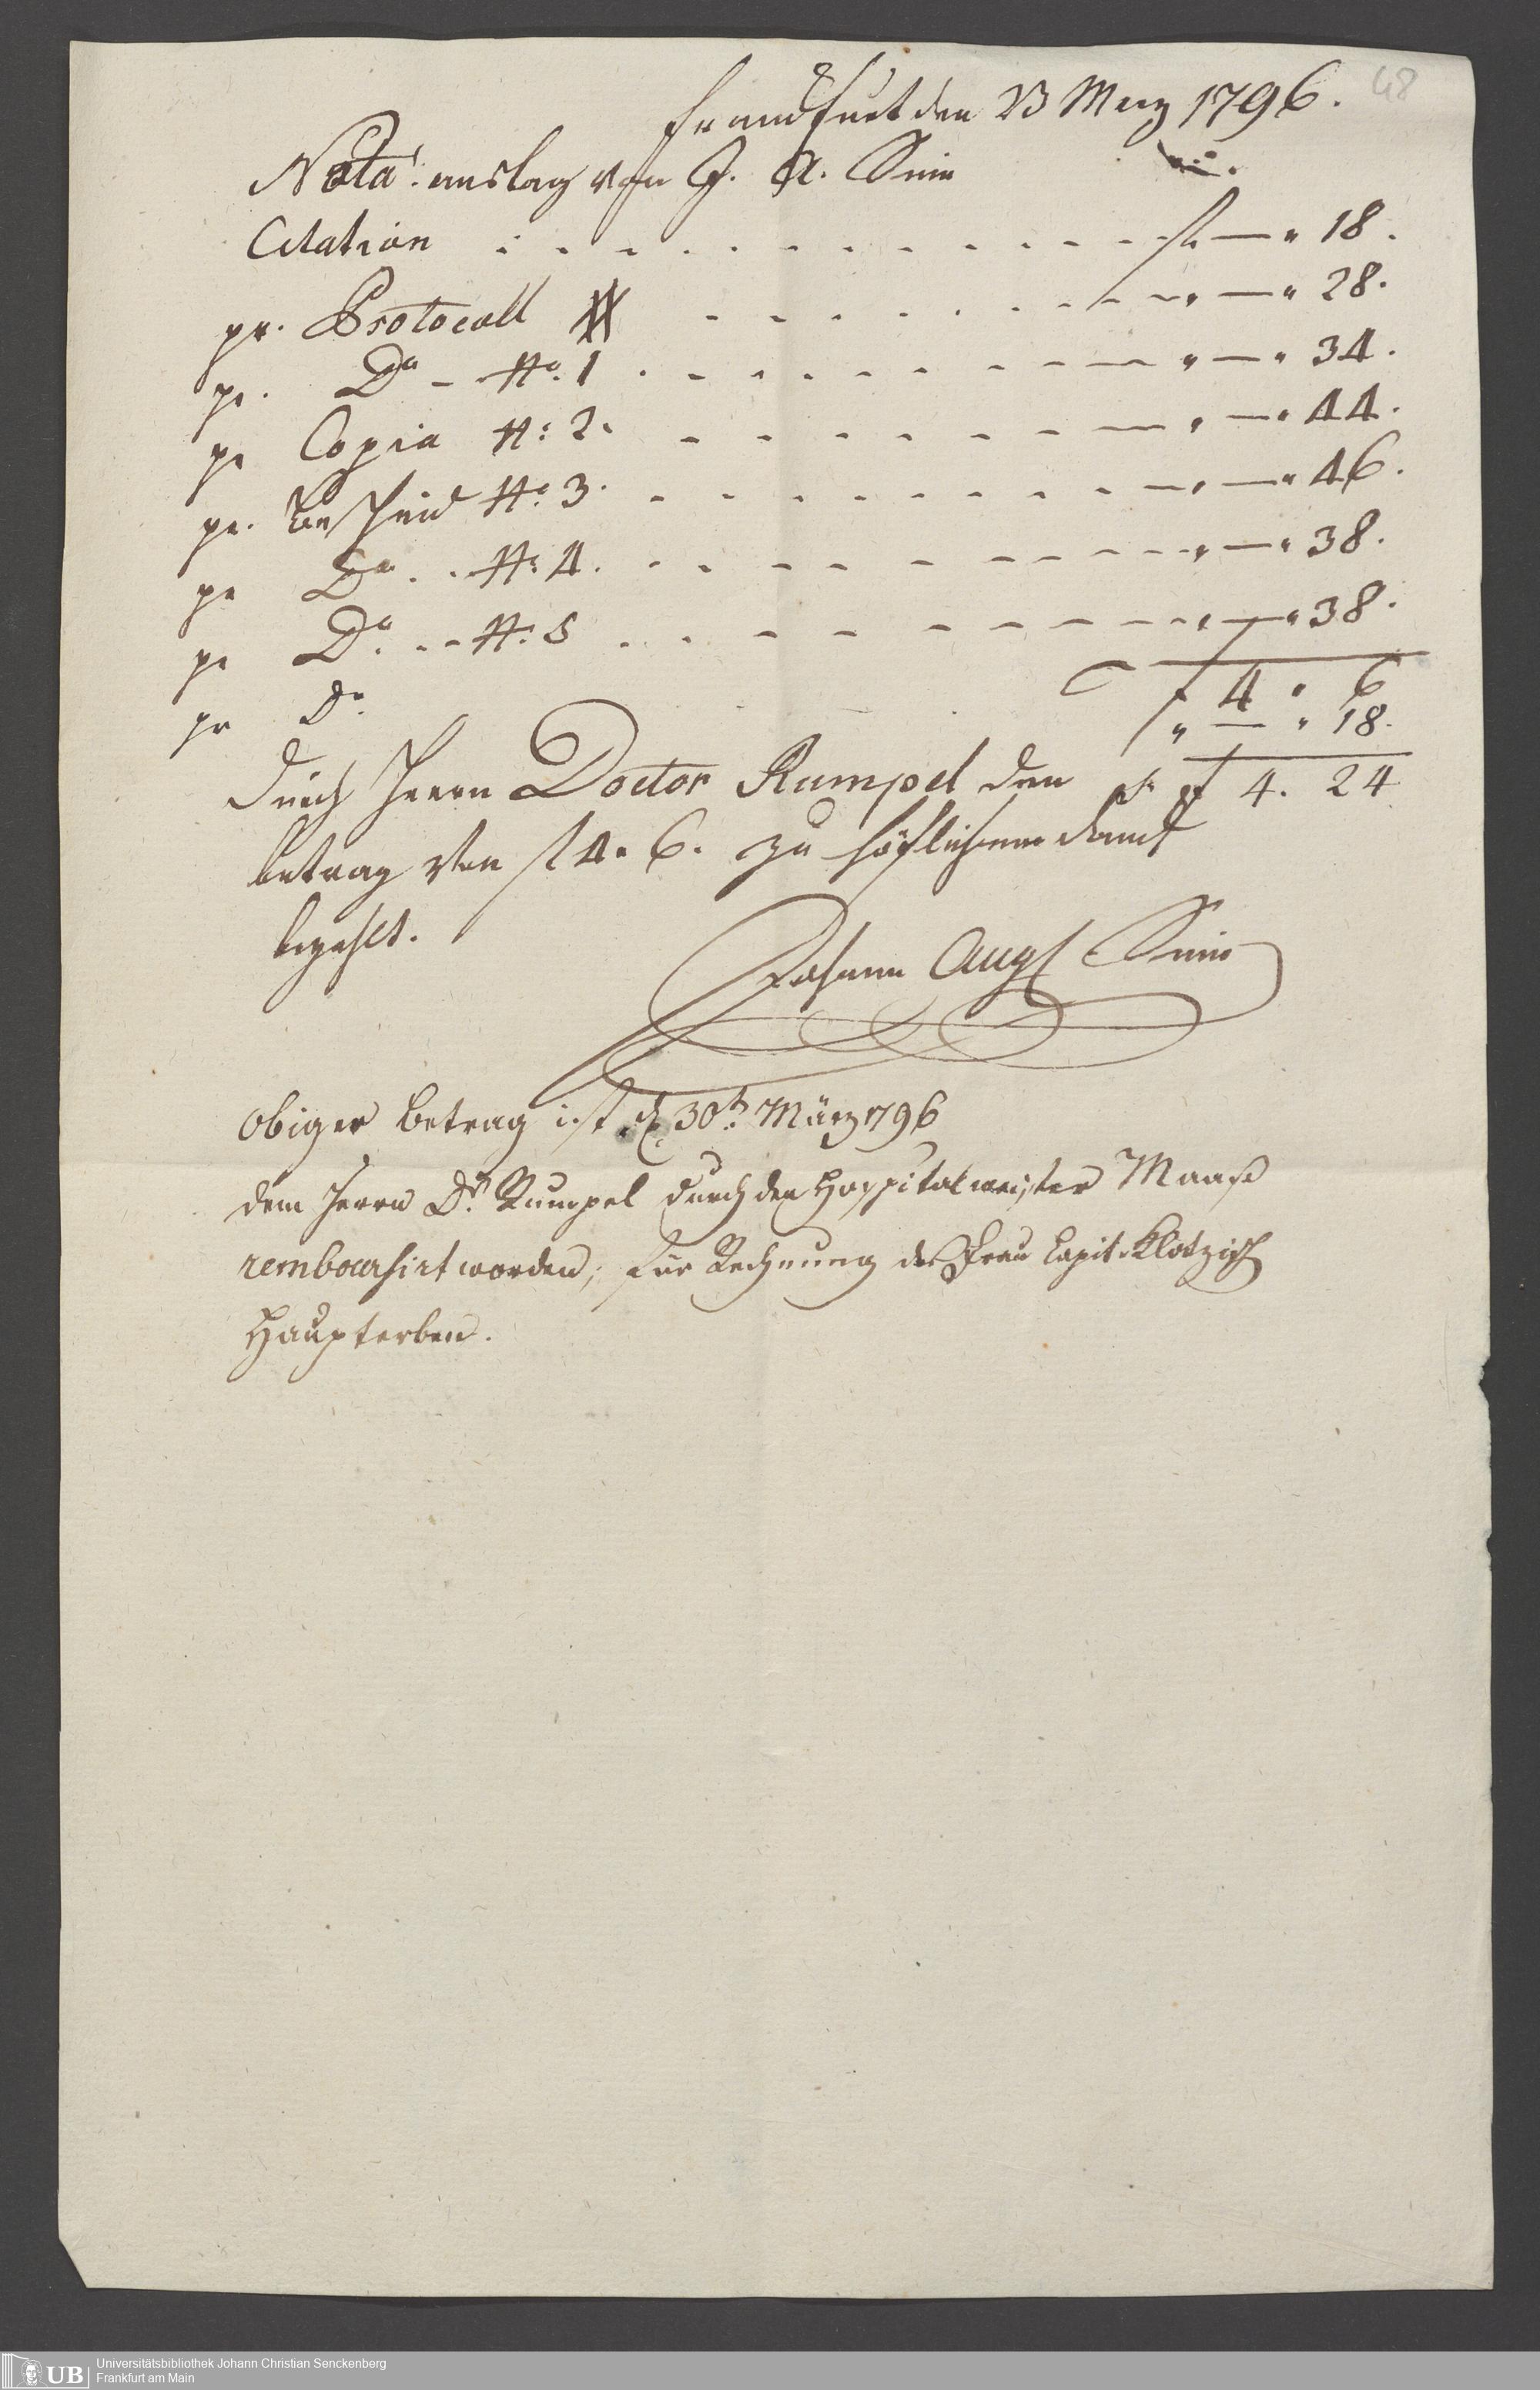 48
Franckfurt den 23 Merz 1796.
Nota. auslag von J. A. 
Citation . . . . . . . . . . . . . . f — " 18.
pr. Protocoll . . . . . . . . . " — " 28.
pr. Do — No. 1 . . . . . . . . . " — " 34.
pr Copia No: 2. . . . . . . . . " — " 44.
pr. Bescheid No. 3. . . . . . . . . " — " 46.
pr Do. . . No: 4. . . . . . . . . " — " 38.
pr Do. . . No: 5 . . . . . . . . . " — " 38.
f 4 " 6
pr Do. " — " 18.
durch Herrn Doctor Rumpel den f 4. 24
betrag von f 4. 6. zu höflichem danck
bezahlt.
Johann Aug
Obiger Betrag ist d. 30t. März 1796
dem Herrn Dr. Rumpel durch den Hospitalmeister Maaß
remboursirt worden, für Rechnung der Frau Capit. Klotzisch
Haupterben.
UB
Universitätsbibliothek Johann Christian Senckenberg
Frankfurt am Main